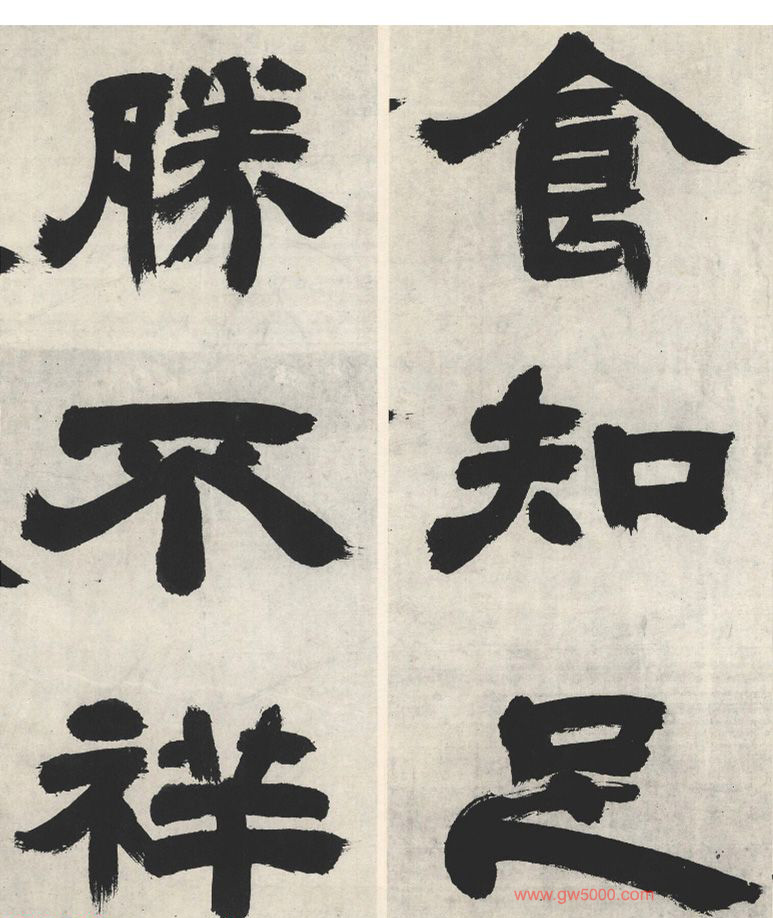 食知足
勝不祥
www.gw5000.com